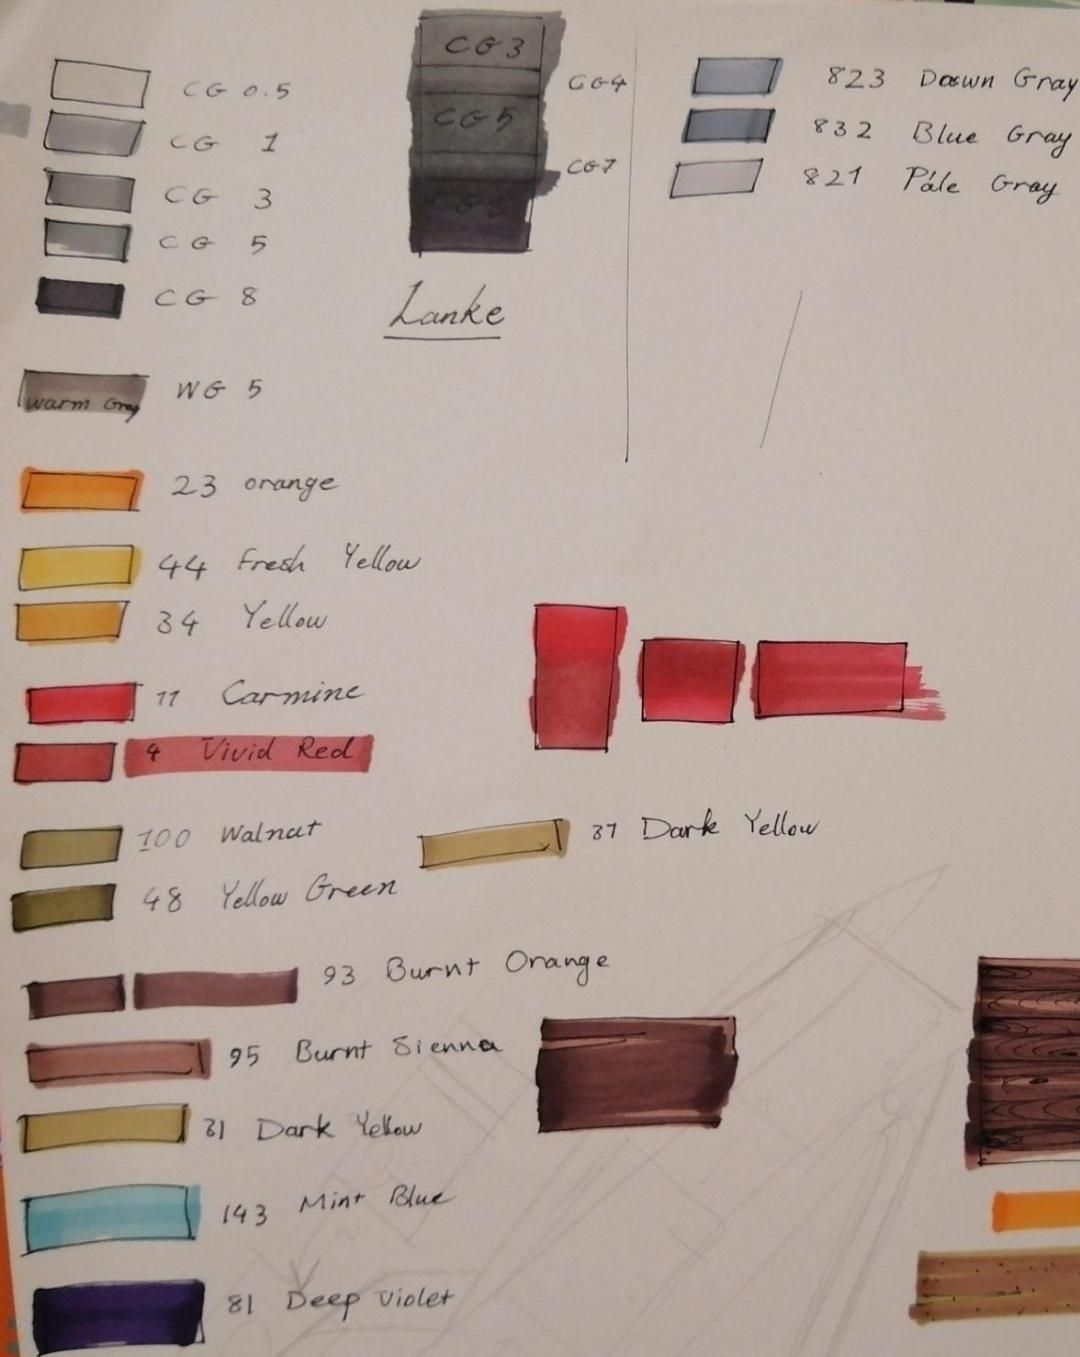 CG 0.5
CG 1
CG 3
CG 5
CG 8
CG3
CG4
CG5
CG7
Lanke
823 Dawn Gray
832 Blue Gray
821 Pale Gray
WG 5
Warm Gray
23 orange
44 Fresh Yellow
34 Yellow
11 Carmine
4 Vivid Red
100 Walnut
31 Dark Yellow
48 Yellow Green
93 Burnt Orange
95 Burnt Sienna
31 Dark Yellow
143 Mint Blue
81 Deep Violet